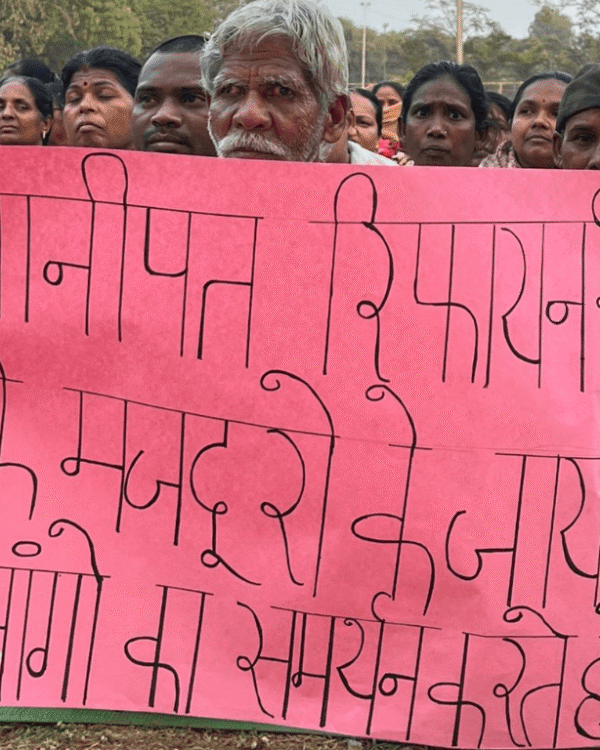 पानीपत रिफायन
के मजदूरो के जाय
मांगो का समर्थन करते